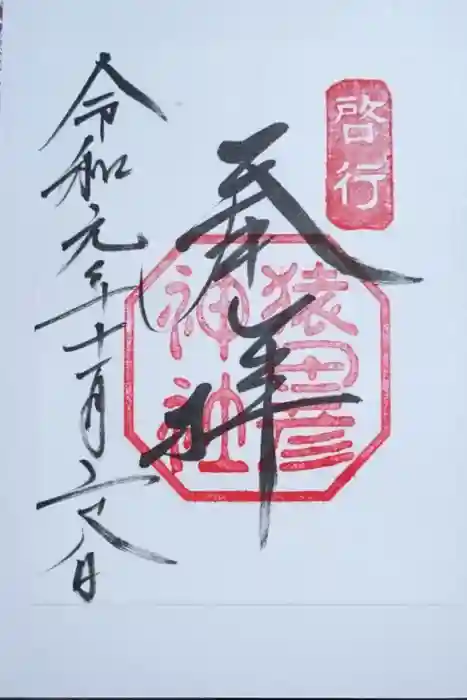 啓行
奉拝
猿田彦
神社
令和元年十月二十八日